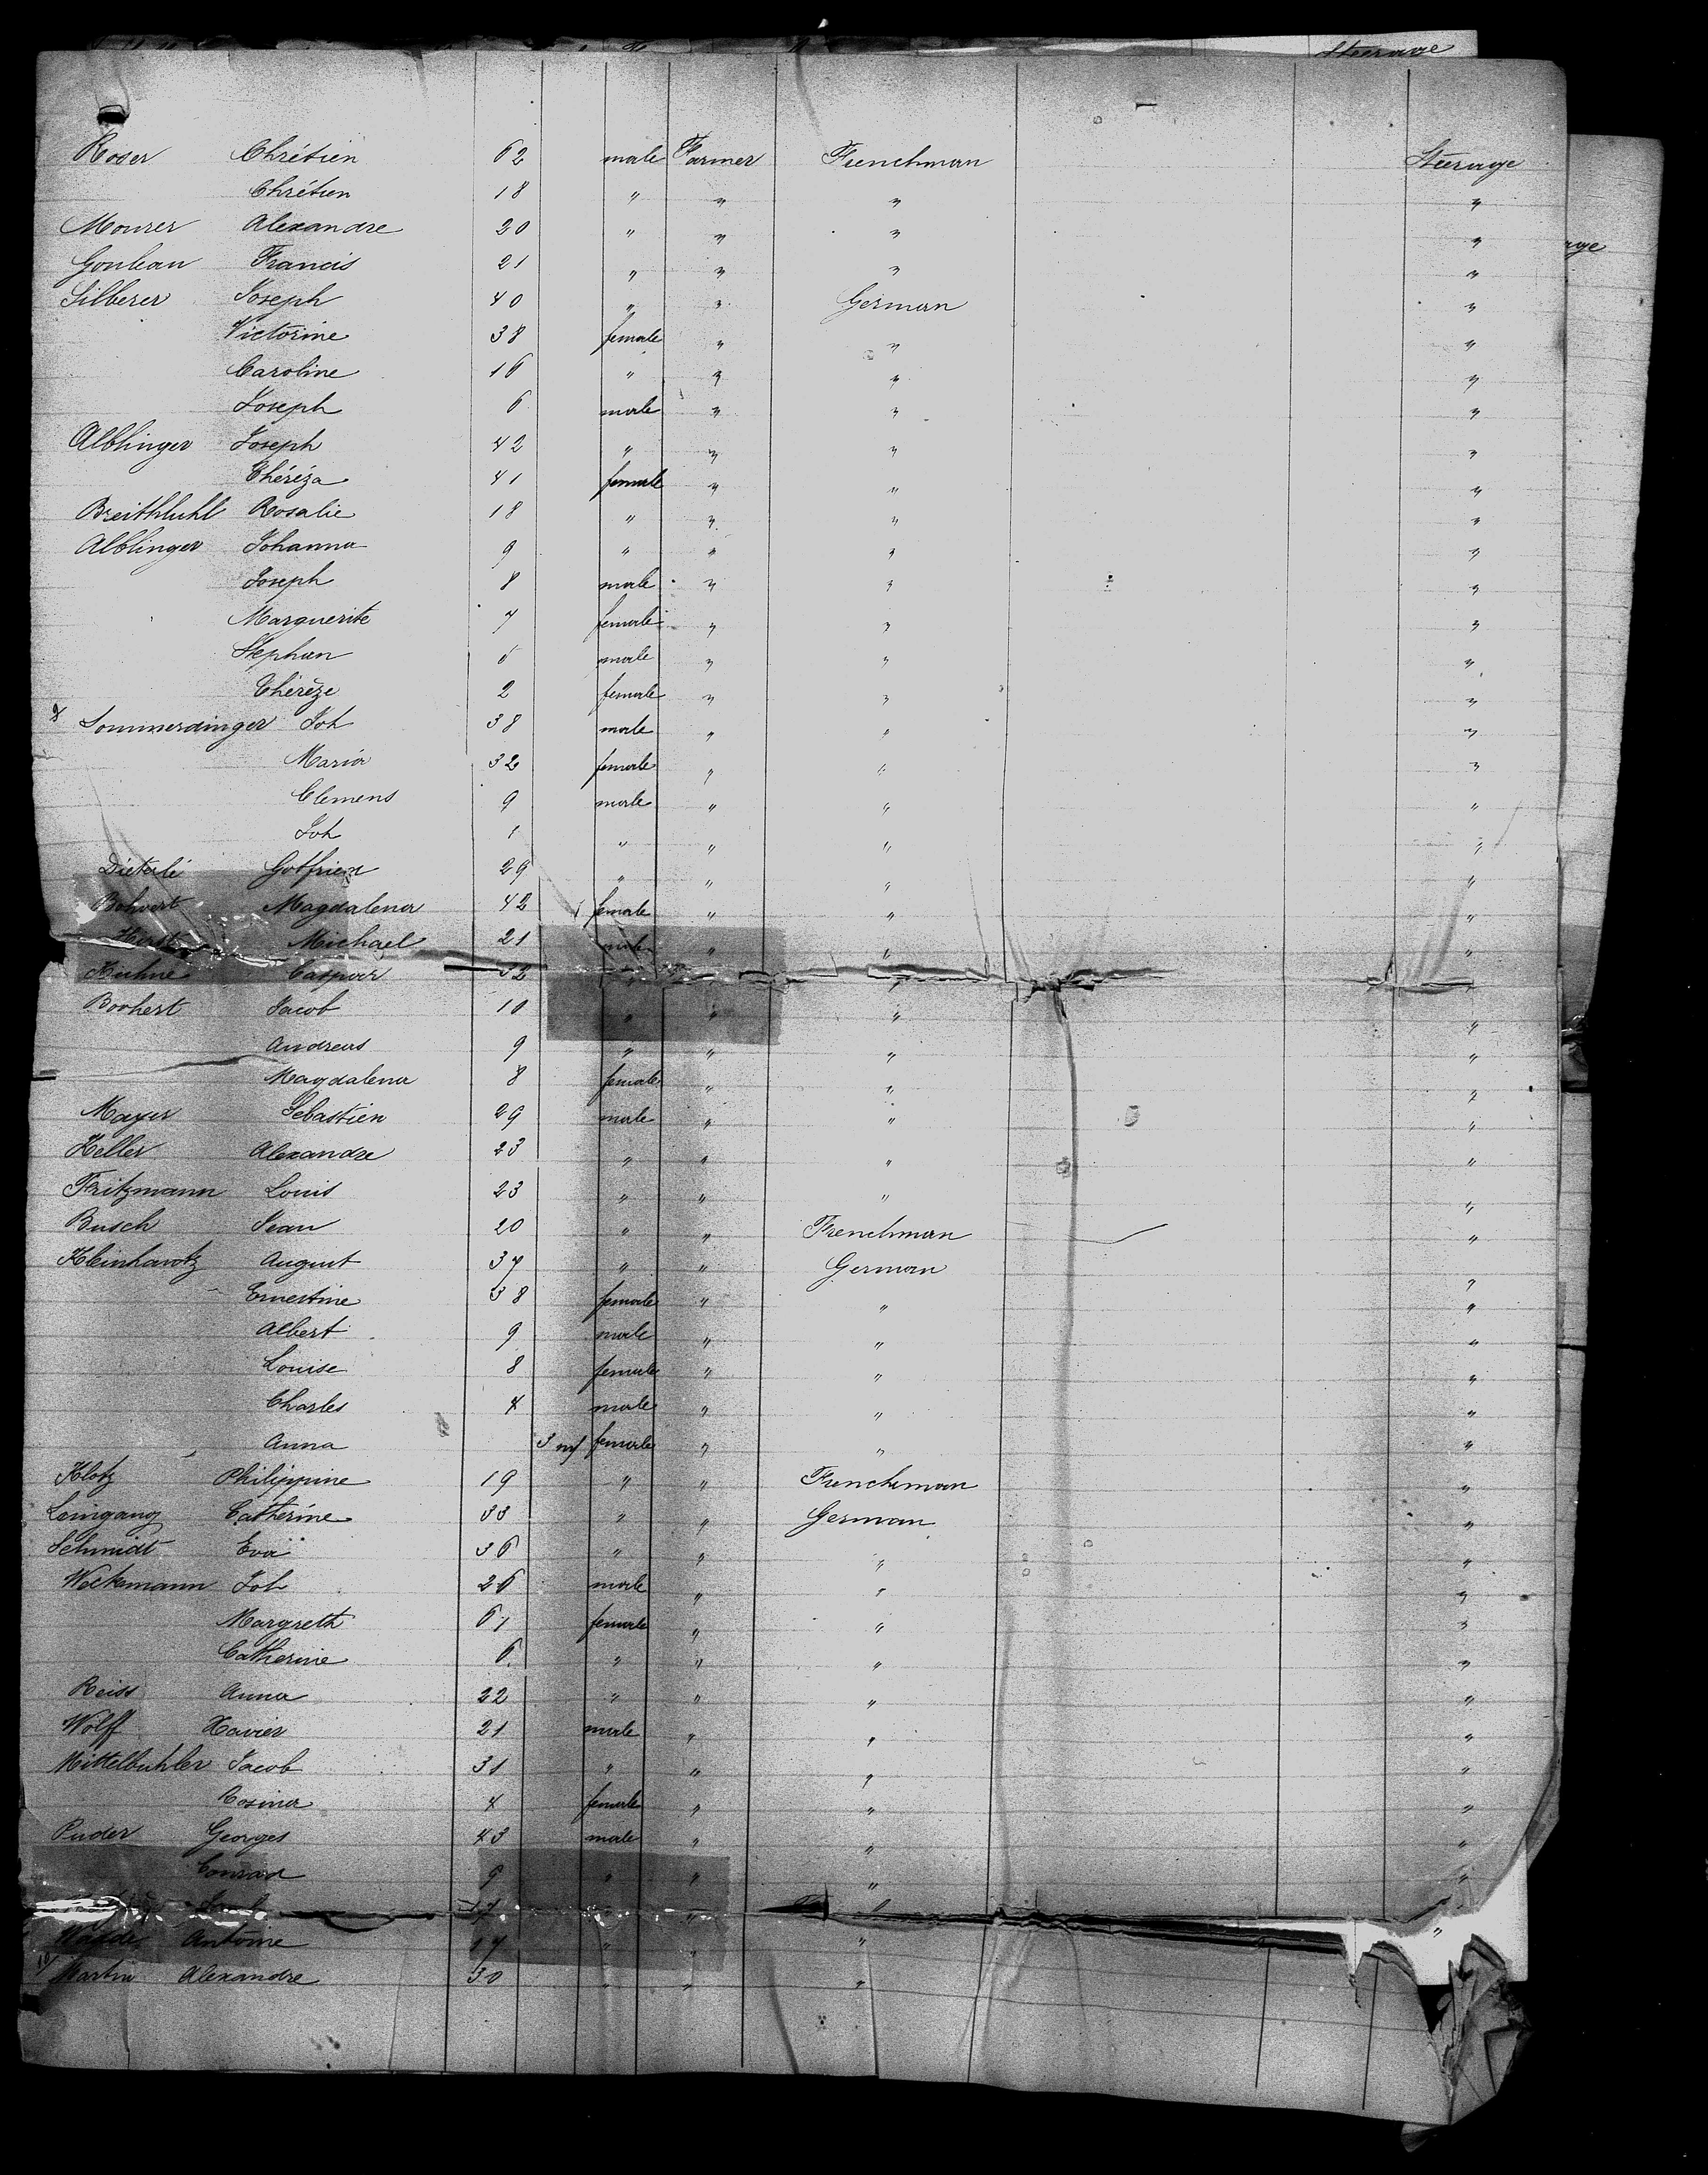 Steerage
Roser Chrétien 62 male Farmer Frenchman Steerage
Chrétien 18 " " " "
Mourer Alexandre 20 " " " "
Francis 21 " " " "
Silberer Joseph 40 " " German "
Victorine 38 female " " "
Caroline 16 " " " "
Joseph 6 male " " "
Alblinger Joseph 42 " " " "
Théréza 41 female " " "
Rosalie 18 " " " "
Alblinger Johanna 9 " " " "
Joseph 8 male " " "
Marguerite 7 female " " "
Stephan male " " "
Thérèze 2 female " " "
Sommerdinger Joh 38 male " " "
Maria 32 female " " "
Clemens 9 male " " "
Joh 1 " " " "
Dieterlé Gotfried 29 " " " "
Magdalena 42 female " " "
Michael 21 male " " "
Kuhne Caspar 32 " " " "
Bohert Jacob 10 " " " "
Andreas 9 " " " "
Magdalena 8 female " " "
Mayer Sebastien 29 male " " "
Keller Alexandre 23 " " " "
Fritzmann Louis 23 " " " "
Busch Jean 20 " " Frenchman "
August 37 " " German "
Ernestine 38 female " " "
Albert 9 male " " "
Louise 8 female " " "
Charles 4 male " " "
Anna 3 m female " " "
Klotz Philippine 19 " " Frenchman "
Leingang Catherine 33 " " German "
Schmidt Eva 36 " " " "
Weckmann Joh 26 male " " "
Margreth 61 female " " "
Catherine 6 " " " "
Reiss Anna 22 " " " "
Wolff Xavier 21 male " " "
Mittelbuhler Jacob 31 " " " "
Rosina 4 female " " "
Puder Georges 43 male " " "
Conrad 9 " " " "
Antoine 17 " " " "
Martin Alexandre 30 " " "